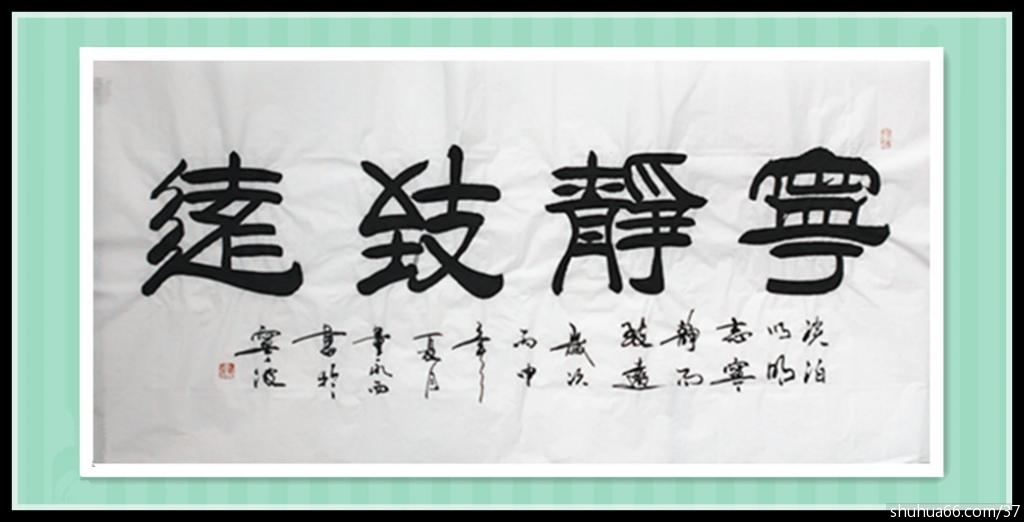 寧靜致遠
淡泊
以明
志寧
靜而
致遠
歲次
丙申
年
夏月
書於
寧波
shuhua66.com/37